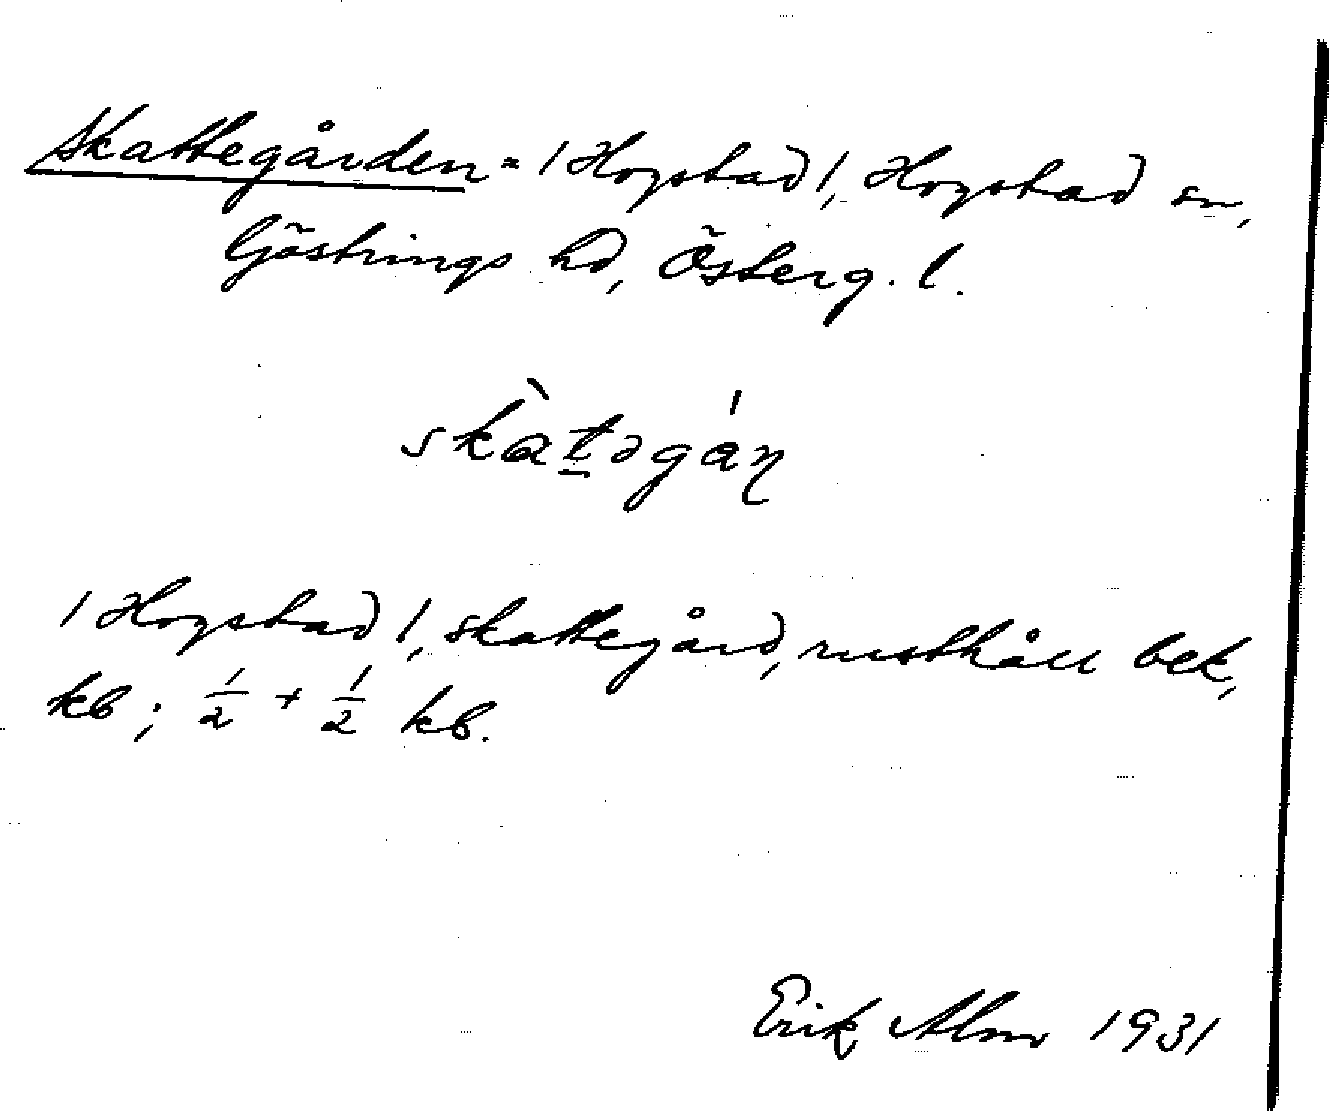 Skattegården = 1 Hogstad 1, Hogstad sn,
Göstrings hd, Österg. l.
skàt̲əgáη
1 Hogstad 1, skattegård, rusthåll bek,
kb; 1/2 + 1/2 kb.
Erik Alm 1931